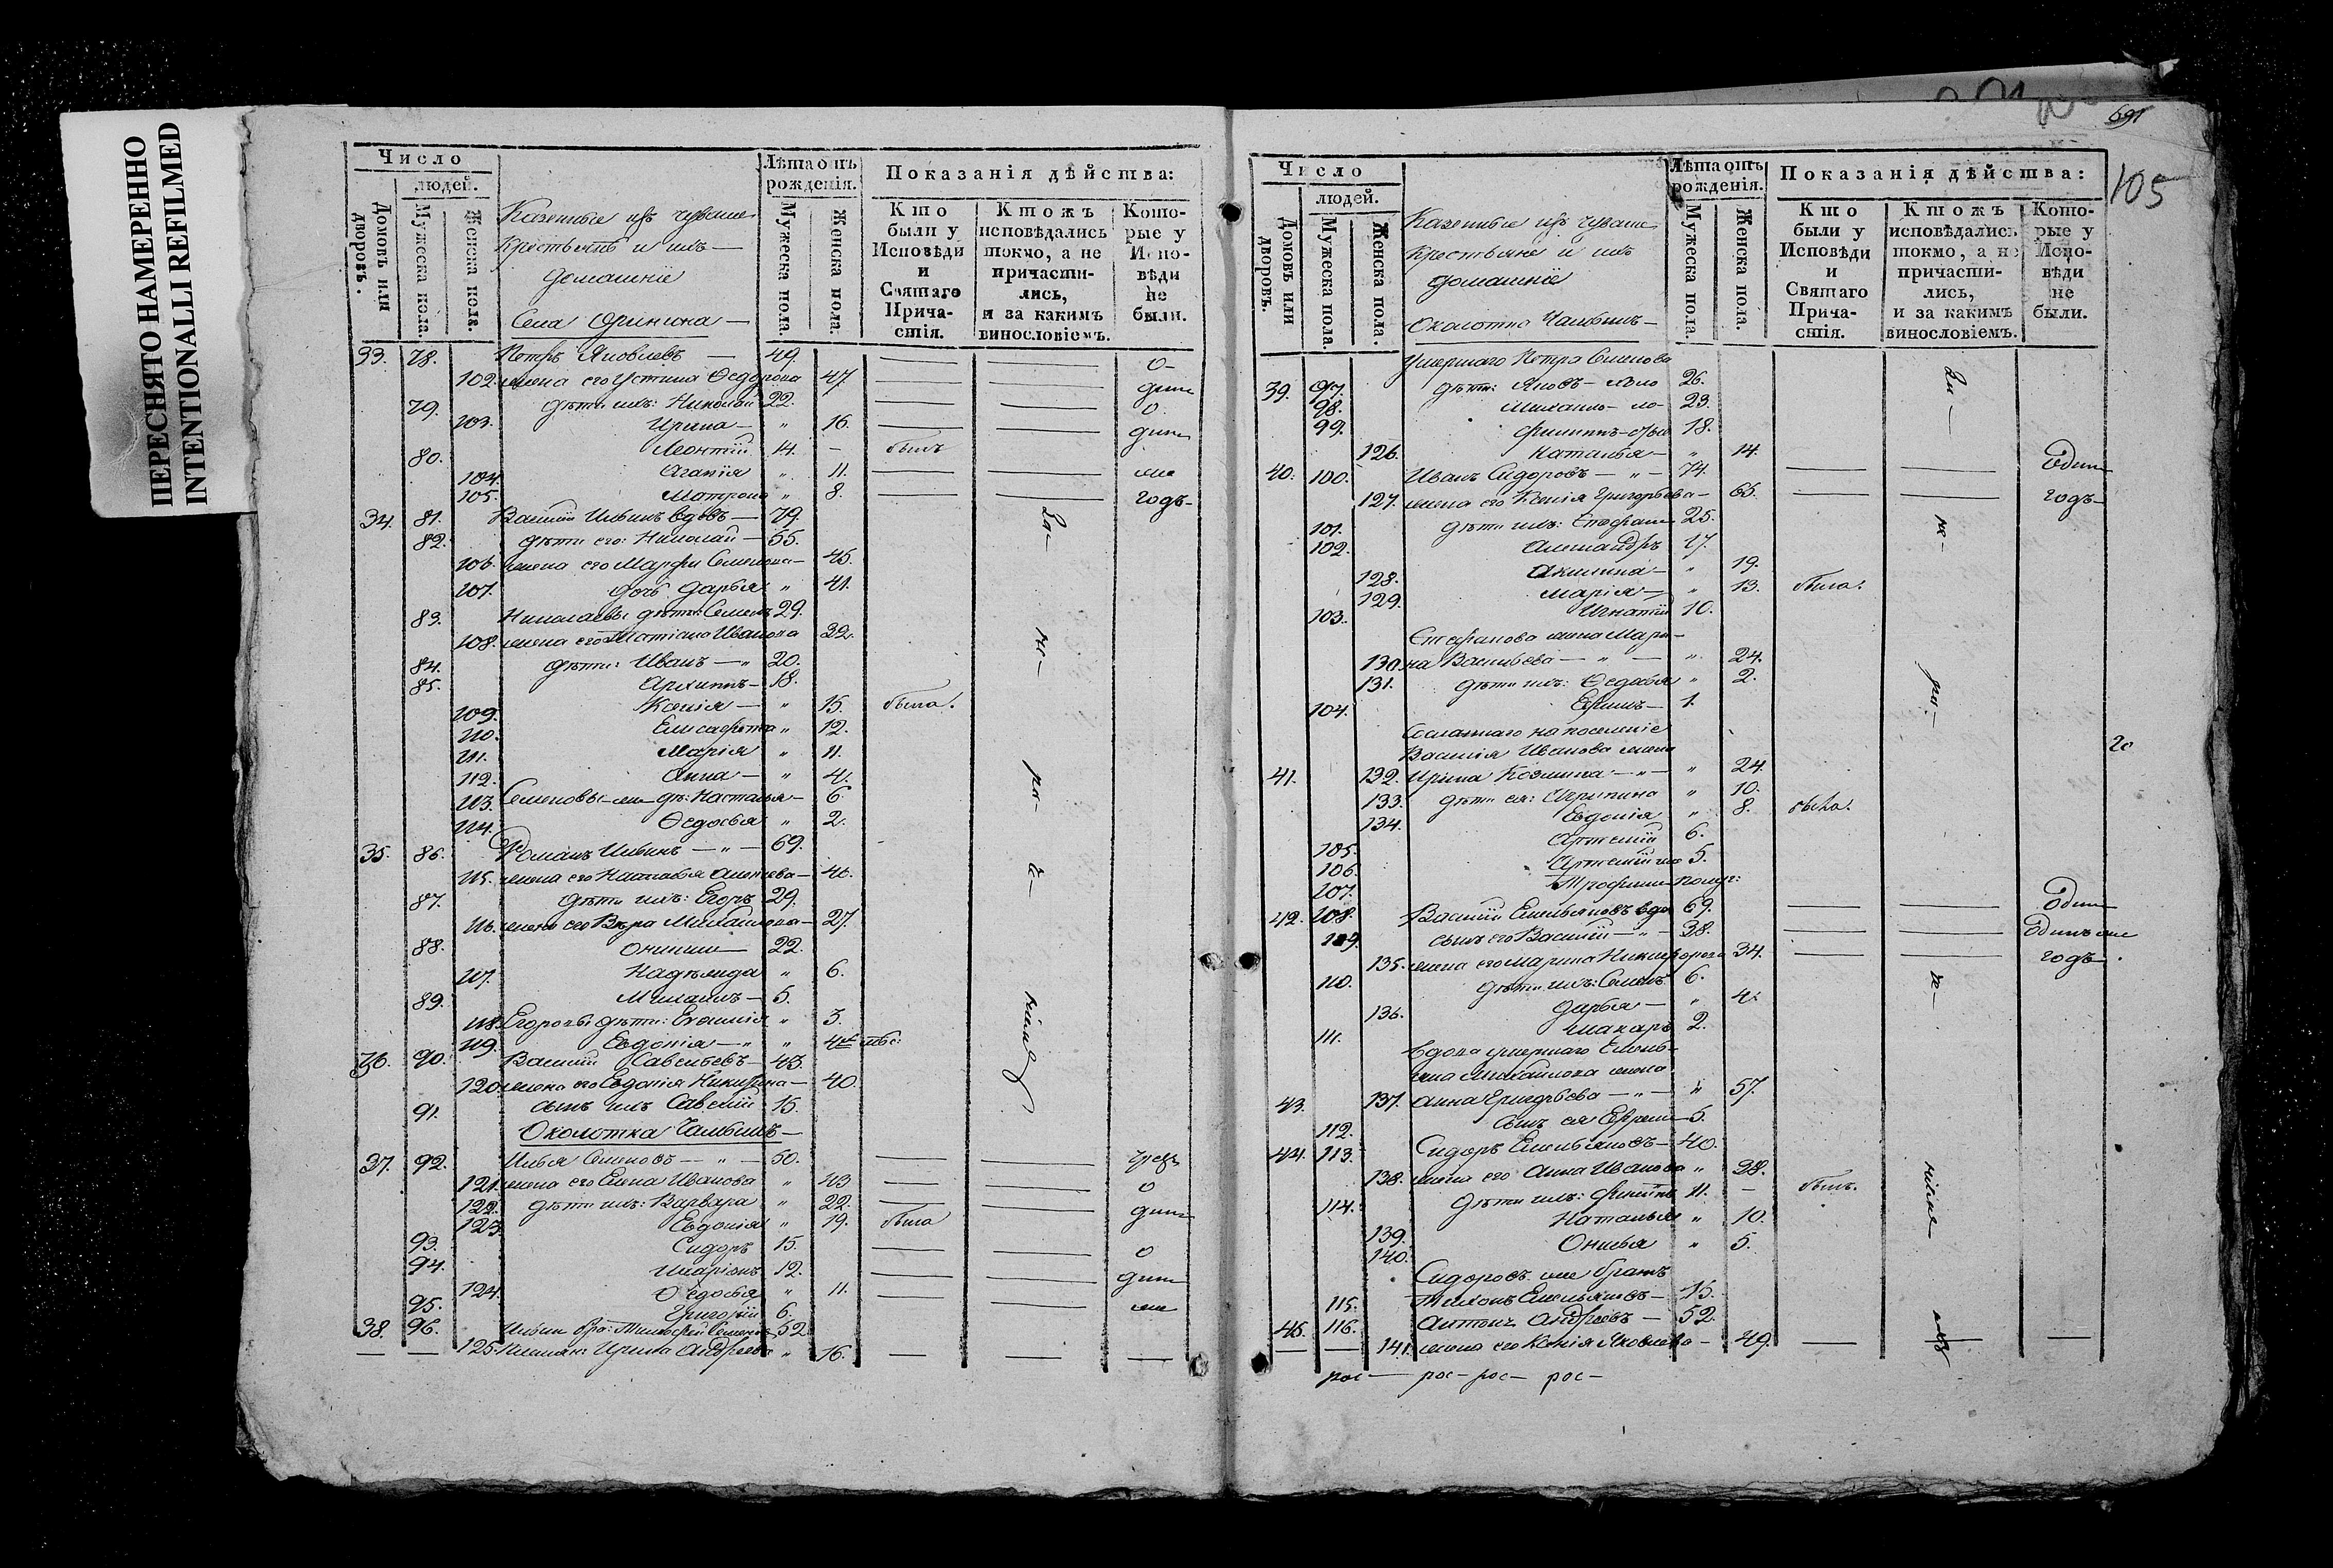 ПЕРЕСНЯТО НАМЕРЕННО
INTENTIONALLI REFILMED
Число
людей.
Домовъ или дворовъ.
Мужеска пола.
Женска пола.
Казенные изъ чувашъ
Крестьянъ и ихъ —
домашніе
Села
Лѣта отъ рожденія.
Мужеска пола.
Женска пола.
Показанія дѣйства:
Кто были у Исповѣди и Святаго Причастія.
Ктожъ исповѣдались токмо, а не причастились, и за какимъ винословіемъ.
Которые у Исповѣди не были.
33. 78. Петръ Яковлевъ — 49.
102. жена его Устина Ѳедорова 47.
79. дѣти ихъ: Николай 22.
103. Ирина — " 16.
80. Леонтій 14. — былъ
104. Агапія " 11.
105. Матрона " 8. годъ
34. 81. Василій Ильинъ вдовъ — 79.
82. дѣти его: Николай — 55.
106. жена его Марфа Семенова — 45.
107. дочь Дарья " 41.
83. Николаевы дѣти: Семенъ 29.
108. жена его Татіана Иванова 32.
84. дѣти: Иванъ — " 20.
85. Архипъ — 18.
109. Ксенія — " 15. была.
110. Елисавета " 12.
111. Марія " 11.
112. Анна — " 4.
113. Семеновы дѣ: Настасья — 6.
114. Ѳедосья " 2.
35. 86. Романъ Ильинъ — " — 69.
115. жена его Наталья Алексѣева — 46.
87. дѣти ихъ: Егоръ 29.
116. жена его Вѣра Михайлова — 27.
88. 22.
117. Надежда " 6.
89. Михаилъ — 5.
118. Егоровы дѣти: " 3.
119. Евдокія — " " 4
36. 90. Василій Савельевъ — 43.
120. жена его Евдокія Никитина — 40.
91. сынъ ихъ Савелій 15.
Околотка Чалымъ —
37. 92. Илья Семеновъ — " — 50.
121. жена его Елена Иванова " 43
122. дѣти ихъ: Варвара " 22.
123. Евдокія " 19. была
93. Сидоръ 15.
94. Иларіонъ 12.
124. Ѳедосья " 11.
95. Григорій 6.
38. 96. Ильинъ бра: Тимофей Семеновъ 52
125. Ирина Андреева " 16.
691
105
Число
людей.
Домовъ или дворовъ.
Мужеска пола.
Женска пола.
Казенные изъ чувашъ
Крестьяне и ихъ
домашніе
Околотка Чалымъ —
Лѣта отъ рожденія.
Мужеска пола.
Женска пола.
Показанія дѣйства:
Кто были у Исповѣди и Святаго Причастія.
Ктожъ исповѣдались токмо, а не причастились, и за какимъ винословіемъ.
Которые у Исповѣди не были.
Умершаго Петра Семенова
39. 97. дѣти: Яковъ — 26.
98. Михаилъ — 23.
99. Филиппъ — 18.
126. Наталья — " 14.
40. 100. Иванъ Сидоровъ — " — 74. Одинъ
127. жена его Ксенія Григорьева — 65. годъ
101. дѣти ихъ: Стефанъ 25.
102. Александръ 17.
128. Акилина — " 19.
129. Марія — " 13. была.
103. Игнатій 10.
Стефанова жена Мари-
130. на Васильева — " — " 24.
131. дѣти ихъ: Ѳедосья " 2.
104. Ефимъ — 1.
Сосланнаго на поселеніе
Василія Иванова жена
41. 132. Ирина Козмина — " — " 24.
133. дѣти ея: Агрипина " 10.
134. Евдокія " 8. была.
105. Артемій 6.
106. Артемій же 5.
107. Трофимъ полуг:
42. 108. Василій Емельяновъ вдо 69. Одинъ
109. сынъ его Василій — " — 38. Одинъ же
135. жена его Марина Никифорова 34. годъ
110. дѣти ихъ: Семенъ 6.
136. Дарья — " 4.
111. Макаръ 2.
Вдова умершаго Емель-
яна Михайлова жена
43. 137. Анна Григорьева — " — " 57.
112. сынъ ея Ефремъ 5.
44. 113. Сидоръ Емельяновъ — 40.
138. жена его Анна Иванова " 38.
114. дѣти ихъ: Филипъ 11. — былъ.
139. Наталья " 10.
140. " 5.
Сидоровъ же братъ
115. Тихонъ Емельяновъ — 15.
45. 116. Антонъ Андреевъ — 52.
141. жена его Ксенія Яковлева — 49.
рос — рос — рос — рос —